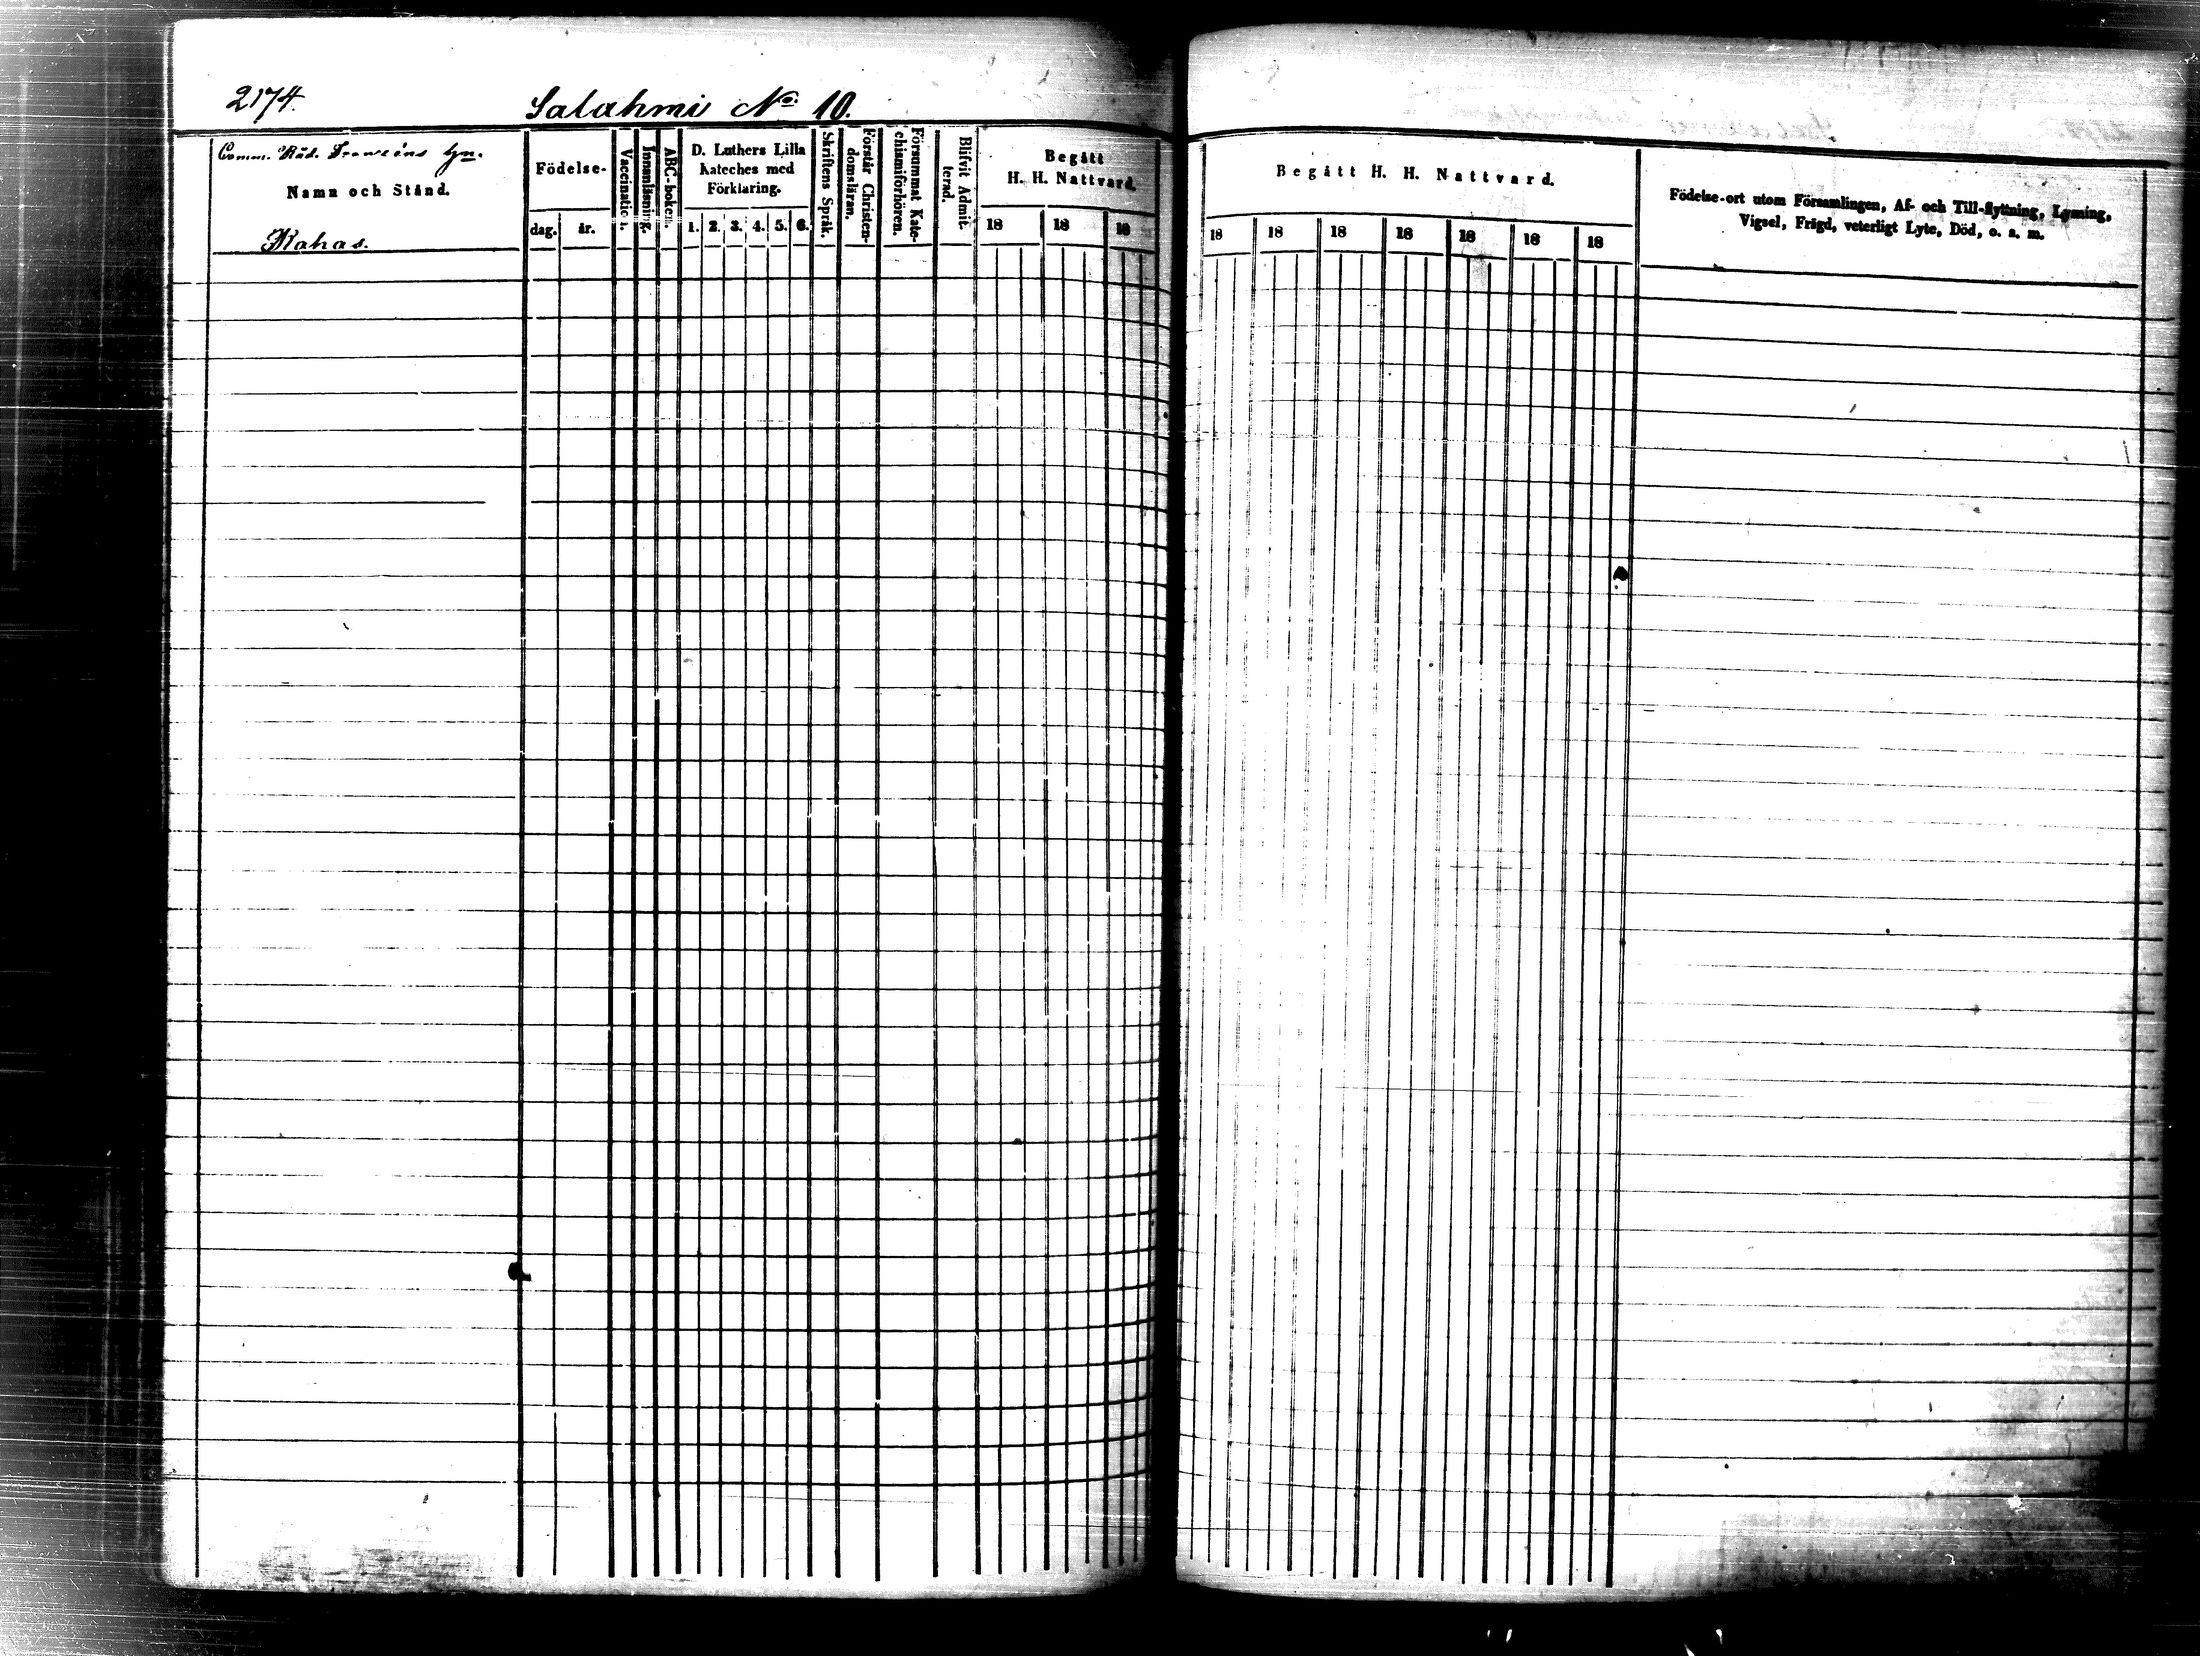 2174.
Salahmi No. 10.
Comm. Råd. hgn.
Namn och Stånd.
Kahas.
Födelse-
dag. år.
Vaccination.
Innanläsning.
ABC-boken.
D. Luthers Lilla
Kateches med
Förklaring.
1. 2. 3. 4. 5. 6.
Skriftens Språk.
Förstår Christen-
domsläran.
Försummat Kate-
chismiförhören.
Blifvit Admit-
terad.
Begått
H. H. Nattvard.
18 18 18
Begått H. H. Nattvard.
18 18 18 18 18 18 18
Födelse-ort utom Församlingen, Af- och Till-flyttning, Lysning,
Vigsel, Frägd, veterligt Lyte, Död, o. s. m.